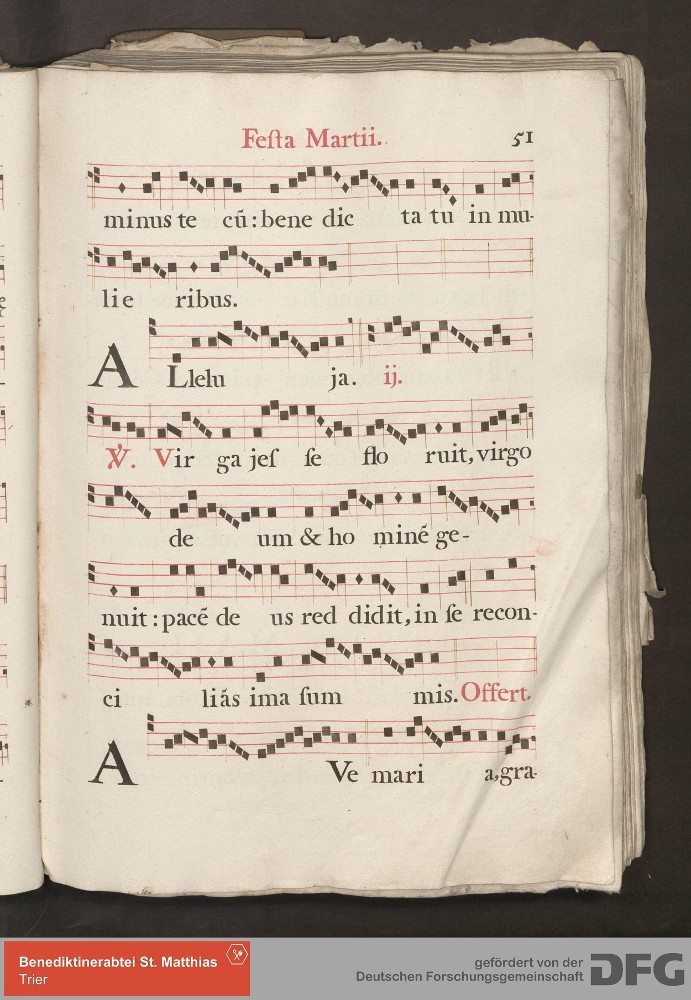 Feſta Martii. 51
minus te cū: bene dic ta tu in mu-
lie ribus.
ALlelu ja. ij.
℣. Vir ga jeſ ſe flo ruit, virgo
de um & ho minē ge-
nuit: pacē de us red didit, in ſe recon-
ci liás ima ſum mis. Offert.
AVe mari a, gra-
Benediktinerabtei St. Matthias
Trier
gefördert von der
Deutschen Forschungsgemeinschaft
DFG